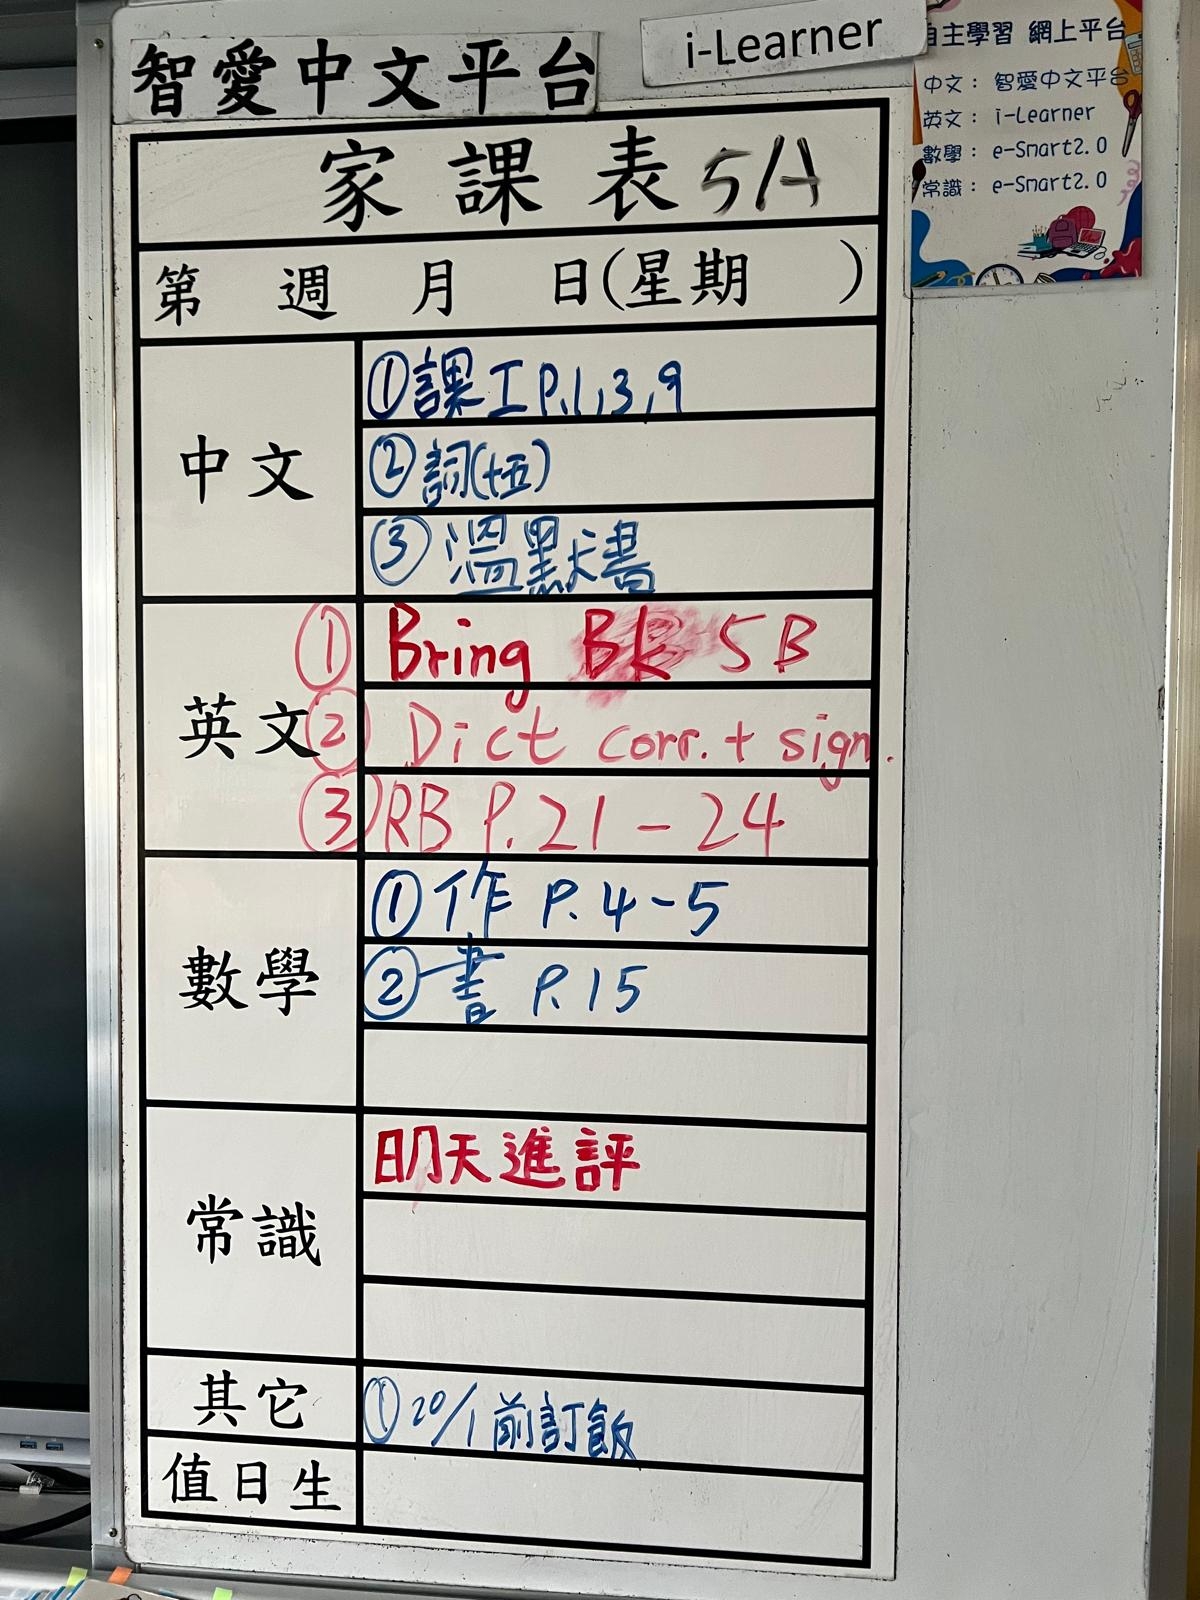 智愛中文平台
i-Learner
自主學習 網上平台
中文： 智愛中文平台
英文： i-Learner
數學： e-Smart2.0
常識： e-Smart2.0
家課表 5A
第 週 月 日(星期 )
中文
①課工P.1,3,9
②詞(十五)
③溫默書
英文
① Bring Bk 5B
② Dict corr. + sign.
③ RB P.21-24
數學
①作 P.4-5
②書 P.15
常識
明天進評
其它
①20/1前訂飯
值日生